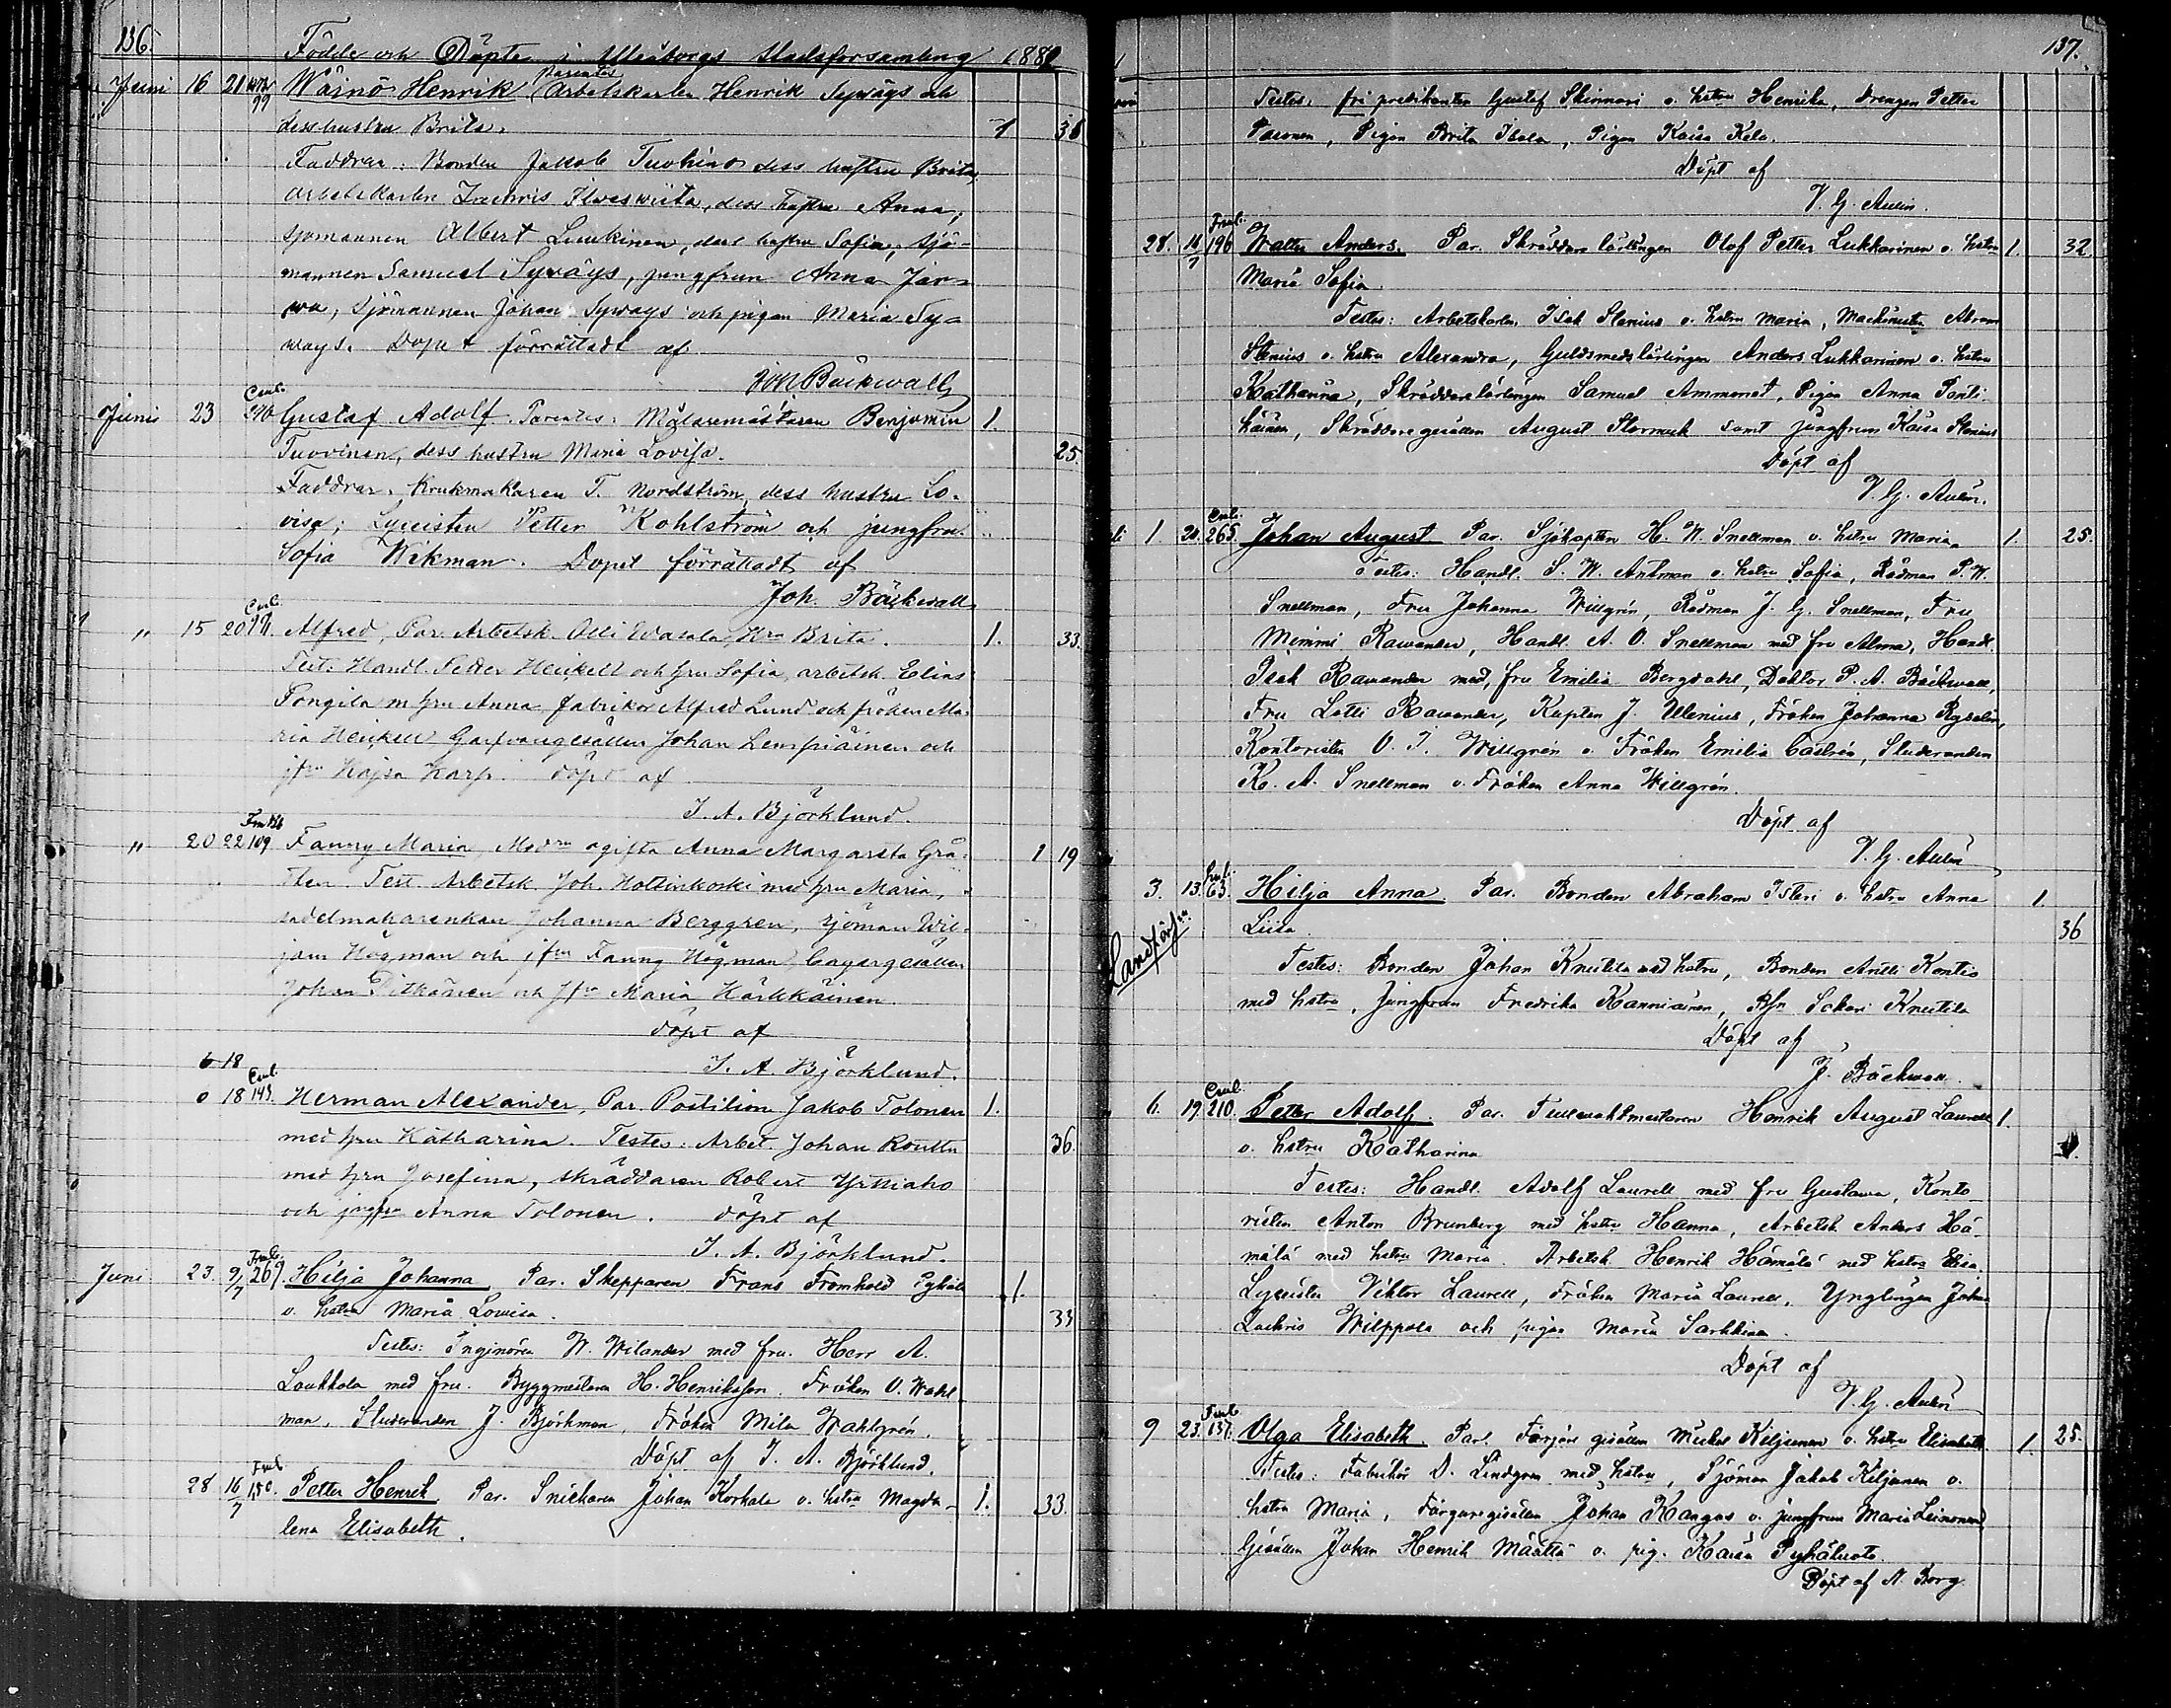 136.
Födde och Döpte i Uleåborgs Stadsförsamling 188
Juni 16 21 99 Wäinö Henrik Parentes Arbetskarlen Henrik Syväys och
dess hustru Brita. 1 38
Faddrar: Bonden Jakob Tuohino dess hustru Brita,
arbetskarlen Ilweswiita, dess hustru Anna,
sjömannen Albert Luukinen, dess hustru Sofia, sjö-
mannen Samuel Syväys, jungfrun Anna Jär-
wa, sjömannen Johan Syväys och pigan Maria Sy-
wäys. Dopet förrättadt af
Bäckwall
Juni 23 Gustaf Adolf. Parentes: Målaremästaren Benjamin 1.
Tuovinen, dess hustru Maria Lovisa. 25.
Faddrar. Krukmakaren T. Nordström, dess hustru Lo-
visa; Lyceisten Petter Kohlström och jungfru
Sofia Wikman. Dopet förrättadt af
Joh. Bäckwall
" 15 20 Alfred, Par. Arbetsk. Olli Wasala, Hru Brita. 1. 33.
Test: Handl. Petter Heickell och hru Sofia, arbetsk. Elias
Pongila m hru Anna, fabrikör Alfred Lund och fröken Ma-
ria Heickell Garfvaregesällen Johan Lempiäinen och
jfru Kajsa Karp. döpt af
J. A. Björklund.
" 20 22 109 Fanny Maria, Modren ogifta Anna Margareta Grå- 1 19
then. Test. Arbetsk. Joh. Koltinkoski med hru Maria,
sadelmakarenkan Johanna Berggren, sjöman Wil-
jam Högman och jfru Fanny Högman, Bagargesällen
Johan Pitkänen och jfru Maria Härkkäinen.
döpt af
J. A. Björklund.
6 18
6 18 143. Herman Alexander, Par. Postilion Jakob Tolonen 1.
med hru Katharina. Testes: Arbet. Johan Routtu 36.
med hru Josefina, skräddaren Robert Yrttiaho
och jungfru Anna Tolonen. döpt af
J. A. Björklund.
Juni 23. 9/7 269. Hilja Johanna Par. Skepparen Frans Fromhold 1.
o. hstru Maria Lovisa. 33
Testes: Inginören W. Wilander med fru. Herr A.
Loukkola med fru. Byggmästaren H. Henriksson. Fröken O. Wahl
man, Studeranden J. Björkman, Fröken Mila Wahlgrén.
Döpt af J. A. Björklund.
28 16/7 150. Petter Henrik Par. Snickaren Johan Korkala o. hstru Magda- 1. 33.
lena Elisabeth.
137.
Testes: fri predikanten Gustaf Skinnari o. hstru Henrika, drengen Petter
Paeonen, Pigan Brita Isola, Pigan Kaisa Kela.
Döpt af
V. G. Aulin.
28. 16/7 196 Walter Anders. Par. Skräddare lärlingen Olof Petter Lukkarinen o. hstru 1. 32.
Maria Sofia.
Testes: Arbetskarlen Isak Stenius o. hstru Maria, Maskinisten Abram
Stenius o. hstru Alexandra, Guldsmedslärlingen Anders Lukkarinen o. hstru
Katharina, Skräddarelärlingen Samuel Ammonet, Pigan Anna Ponti-
häinen, Skräddaregesällen August samt jungfrun Kaisa Stenius
Döpt af
V. G. Aulin.
1 20. 265. Johan August Par. Sjökapten H. W. Snellman o. hstru Maria 1. 25.
Testes: Handl. S. W. Antman o. hstru Sofia, Rådman P. W.
Snellman, Fru Johanna Willgrén, Rådman J. G. Snellman, Fru
Mimmi Rawander, Handl. A. O. Snellman med fru Alma, Handl.
Isak Rawander med fru Emilia Bergdahl, Doktor P. A. Bäckwall,
Fru Lotti Rawander, Kapten J. Ulenius, Fröken Johanna Rysselin,
Kontoristen O. J. Willgren o. Fröken Emilia Castrén, Studeranden
K. A. Snellman o. Fröken Anna Willgrén.
Döpt af
V. G. Aulin
3. 13. 63. Hilja Anna. Par. Bonden Abraham o. hstru Anna 1.
Liisa. 36
Landsförs.
Testes: Bonden Johan Knuutila med hstru, Bonden Antti Kontio
med hstru, Jungfrun Fredrika Kanniainen, Sakari Knuutila
Döpt af
J. Bäckwall.
6. 19 210. Petter Adolf. Par. Tullvaktmästaren Henrik August Laurell 1.
o. hstru Katharina
Testes: Handl. Adolf Laurell med fru Gustava, Konto
risten Anton Brunberg med hstru Hanna, Arbetsk Anders Hä-
mälä med hstru Maria. Arbetsk. Henrik Hämälä med hstru Elisa,
Lyceisten Viktor Laurell, Fröken Maria Laurell, Ynglingen Johan
Zachris Wilppola och pigan Maria Sarkkinen.
Döpt af
V. G. Aulin
9 23. 137. Olga Elisabeth. Par. Färjare gesällen Mickel Kiljunen o. hstru Elisabeth. 1. 25.
Testes: Fabrikör D. Lindgren med hstru, Sjöman Jakob Kiljunen o.
hstru Maria, Färgaregesällen Johan Kangas o. jungfrun Maria Leinonen
Gesällen Johan Henrik Määttä o. pig. Kaisa Pyhäluoto
Döpt af N. Borg